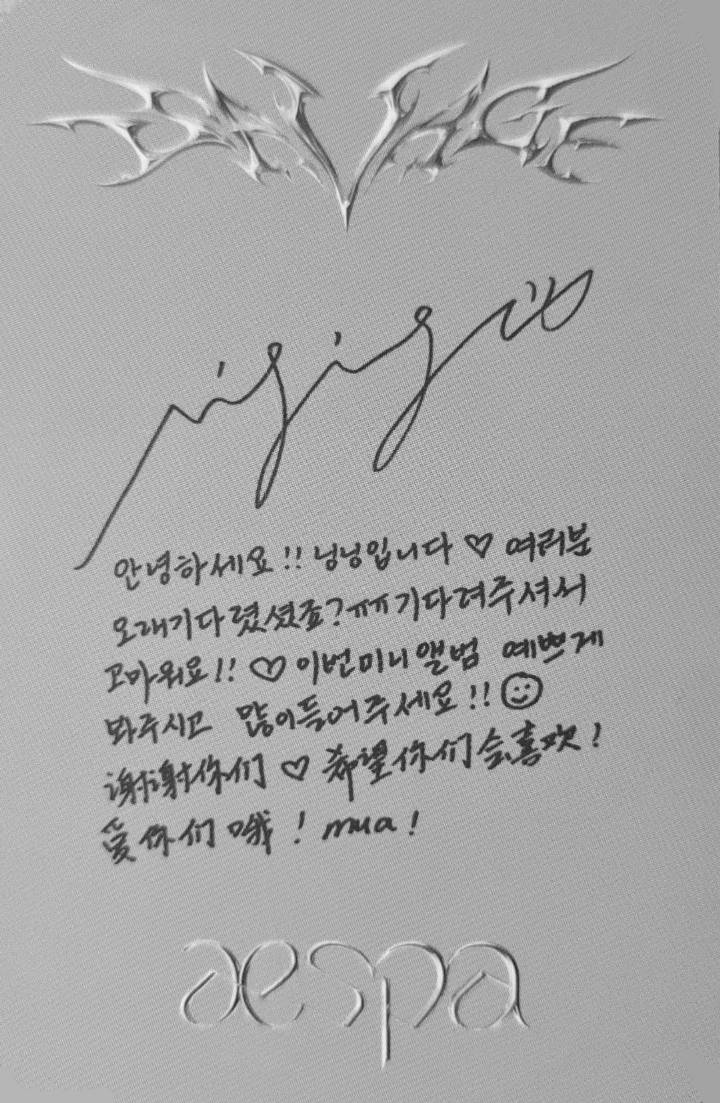 SAVAGE
ningning
안녕하세요!! 닝닝입니다 ♡ 여러분
오래기다렸셨죠? ㅠㅠ 기다려주셔서
고마워요!! ♡ 이번미니앨범 예쁘게
봐주시고 많이들어주세요!! ☺
谢谢你们 ♡ 希望你们会喜欢!
爱你们哦! mua!
aespa